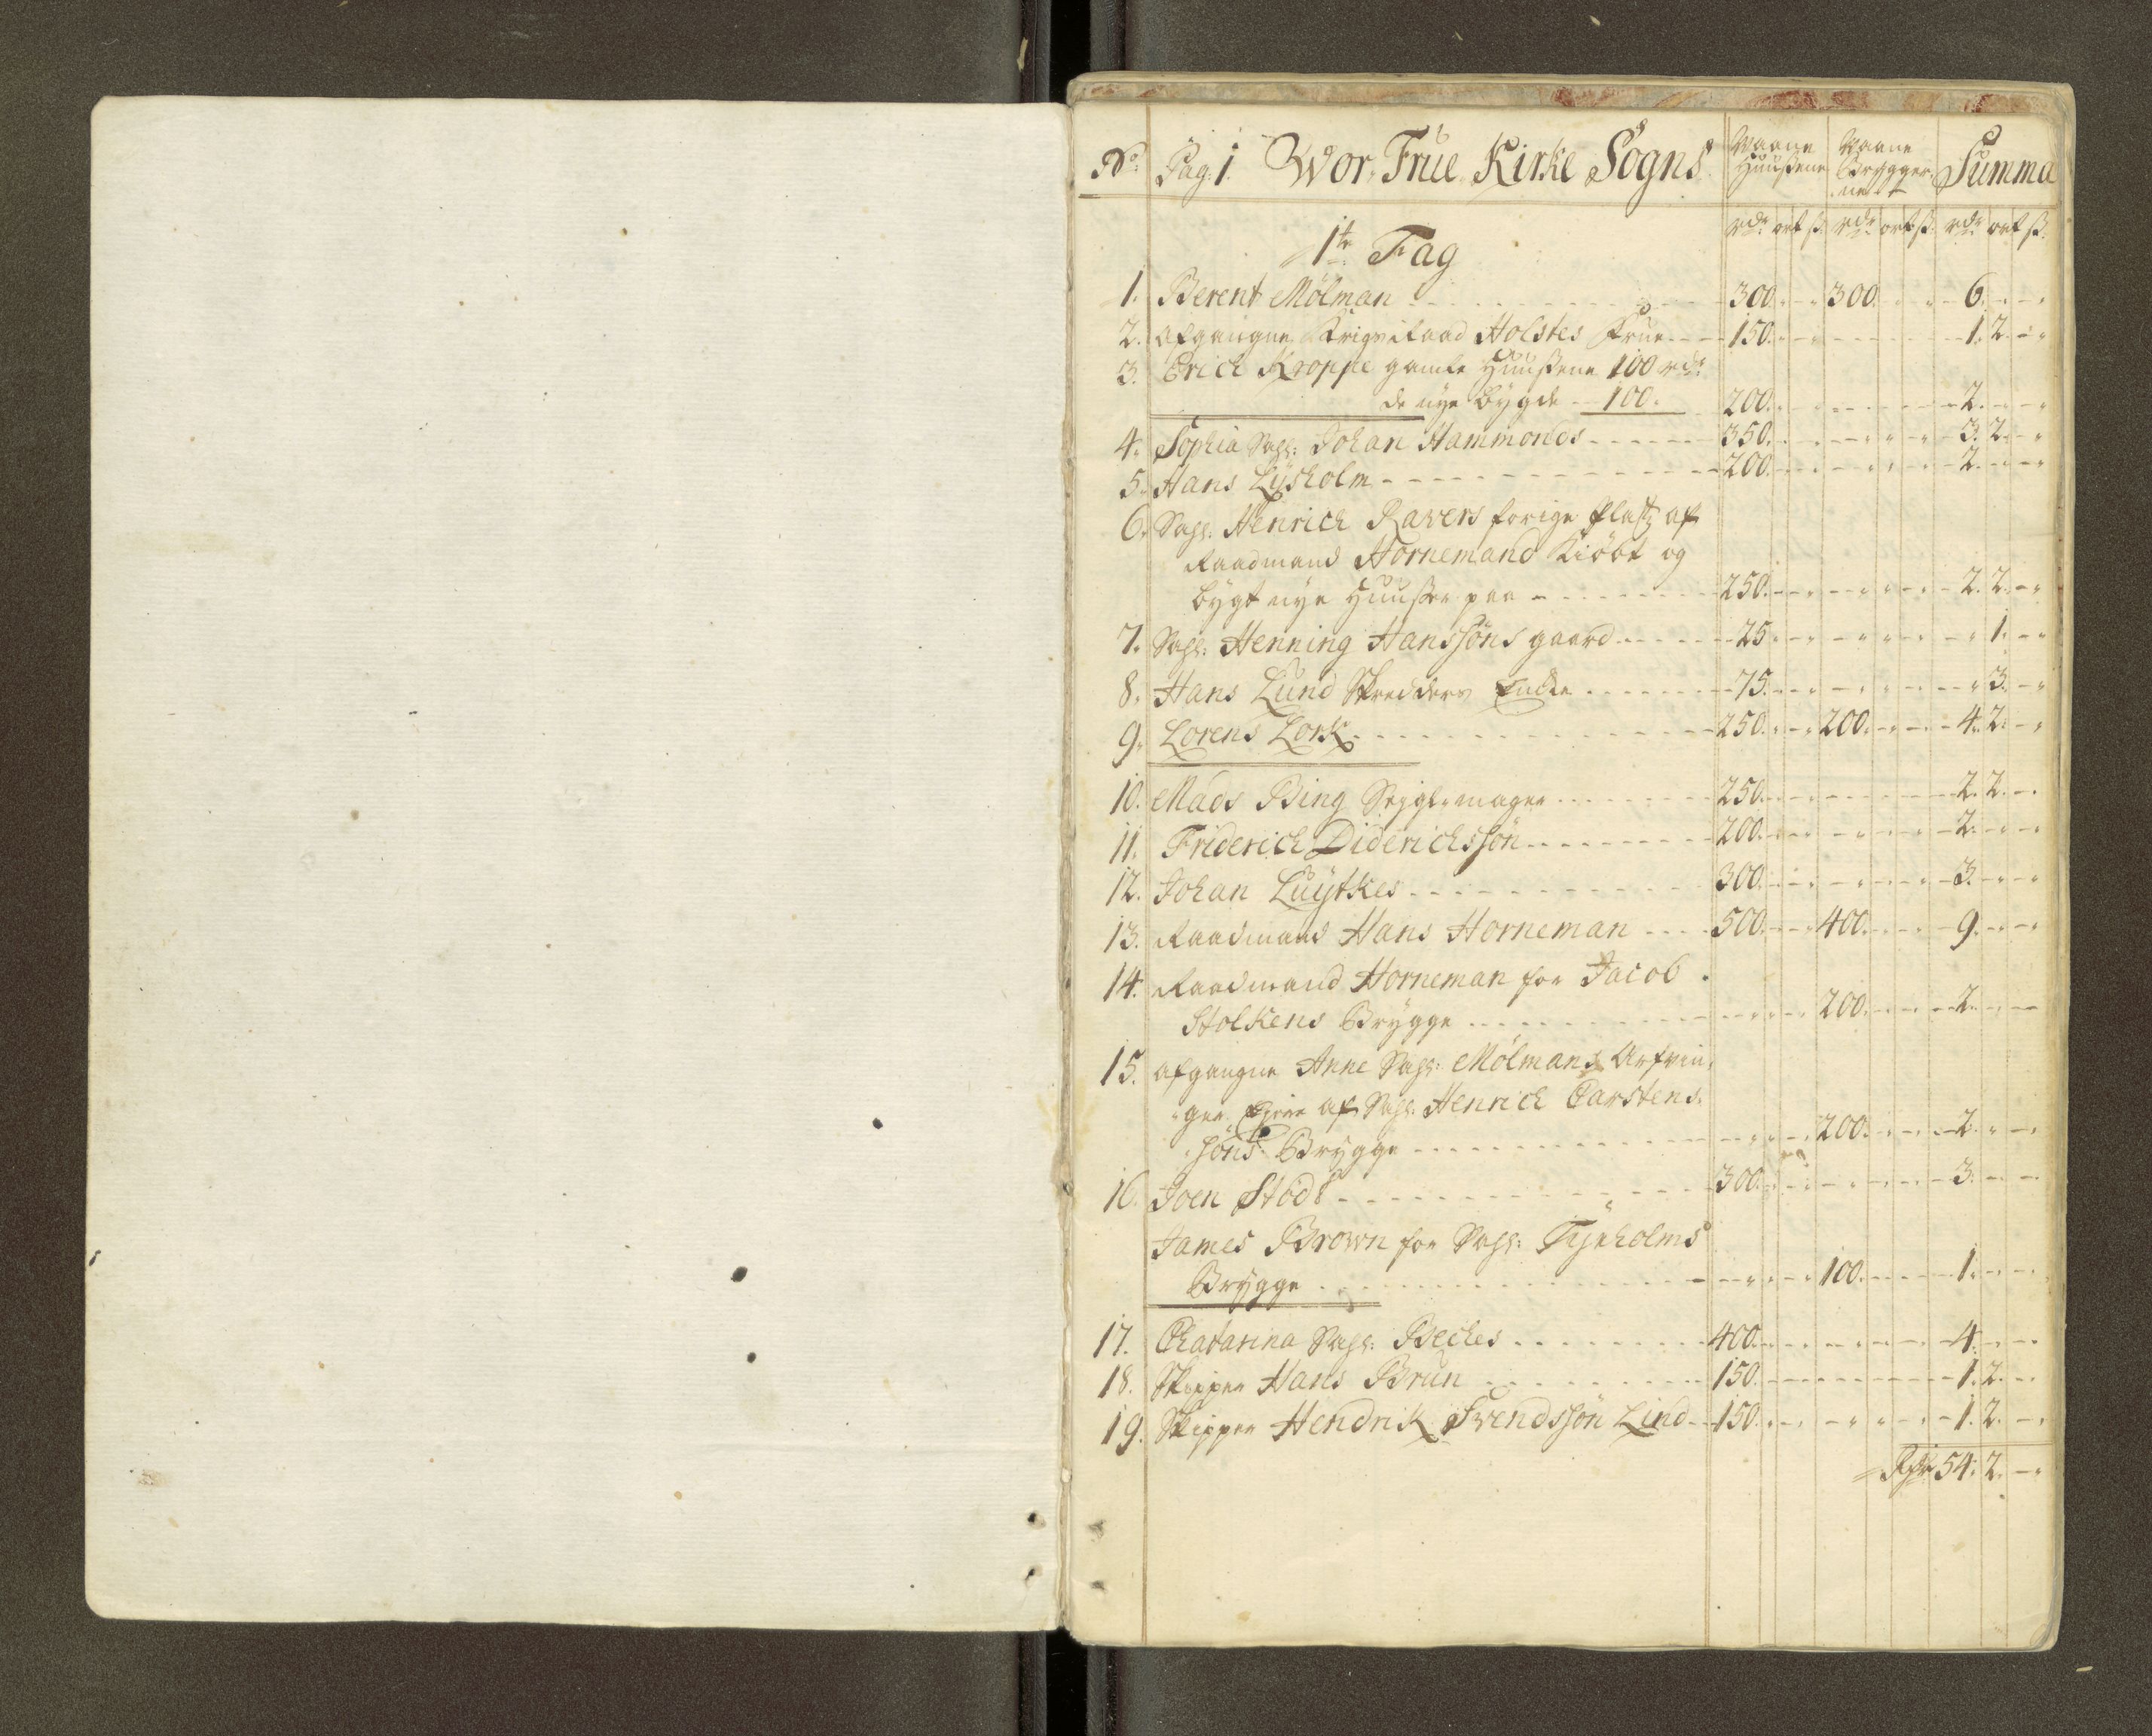 No: Pag: 1. Wor Frue Kirke Sogns Paane Huußene Paane Brygger- Summa
ne
1te Fag rdr ort ß rdr ort ß rdr ort ß
1. Berent Mölman 300. 300. 6.
2. afgangne Krigsraad Holstes Frue 150. 1. 2.
3. Erich Kroppe gamle Huußene 100 rdr
de nye bygde 100. 200. 2.
4. Sophia Sahl: Johan Hammonds 350. 3. 2.
5. Hans Lysholm 200. 2.
6. Sahl: Henrich Ravers forige Platz af
Raadmand Hornemand Kiöbt og
bygt nye Huußer paa 250. 2. 2.
7. Sahl: Henning Hanssöns gaard 25. 1.
8. Hans Lund Skredders Encke 75. 3.
9. Lorens Lork 250. 200. 4. 2.
10. Mads Bing Sejglmager 250. 2. 2.
11. Friderich Diderichssön 200. 2.
12. Johan Luytkes 300. 3.
13. Raadmand Hans Horneman 500. 400. 9.
14. Raadmand Horneman for Jacob
Stolkens Brygge 200. 2.
15. afgangne Anne Sahl: Mölmans Arfvin-
ger Ejere af Sahl: Henrich Carstens-
söns Brygge 200. 2.
16. Joen Stöd 300. 3.
James Brown for Sahl: Tyrholms
Brygge 100. 1.
17. Chatarina Sahl: Beches 400. 4.
18. Skipper Hans Brun 150. 1. 2.
19. Skipper Hendrik Svendssön Lind 150. 1. 2.
Rdr 54. 2.